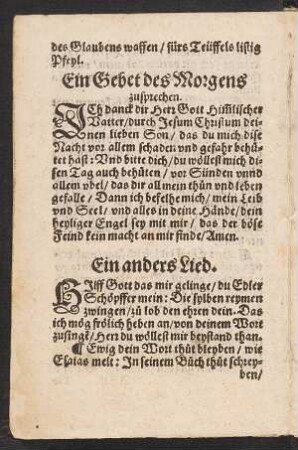 des Glaubens waffen / fürs Teüffels listig
Pfeyl.
Ein Gebet des Morgens
zusprechen.
ICh danck dir Herr Gott Him̃lischer
Vatter / durch Jesum Christum dei-
nen lieben Son / das du mich dise
Nacht vor allem schaden vnd gefahr behü-
tet hast: Vnd bitte dich / du wöllest mich di-
sen Tag auch behüten / vor Sünden vnnd
allem vbel / das dir all mein thůn vnd leben
gefalle / Dann ich befelhe mich / mein Leib
vnd Seel / vnd alles in deine Hände / dein
heyliger Engel sey mit mir / das der böse
Feind kein macht an mir finde / Amen.
Ein anders Lied.
HIlff Gott das mir gelinge / du Edler
Schöpffer mein: Die sylben reymen
zwingen / zů lob den ehren dein. Das
ich mög frölich heben an / von deinem Wort
zusingẽ / Herr du wöllest mir beystand than.
¶ Ewig dein Wort thůt bleyben / wie
Esaias melt: In seinem Bůch thůt schrey-
ben /